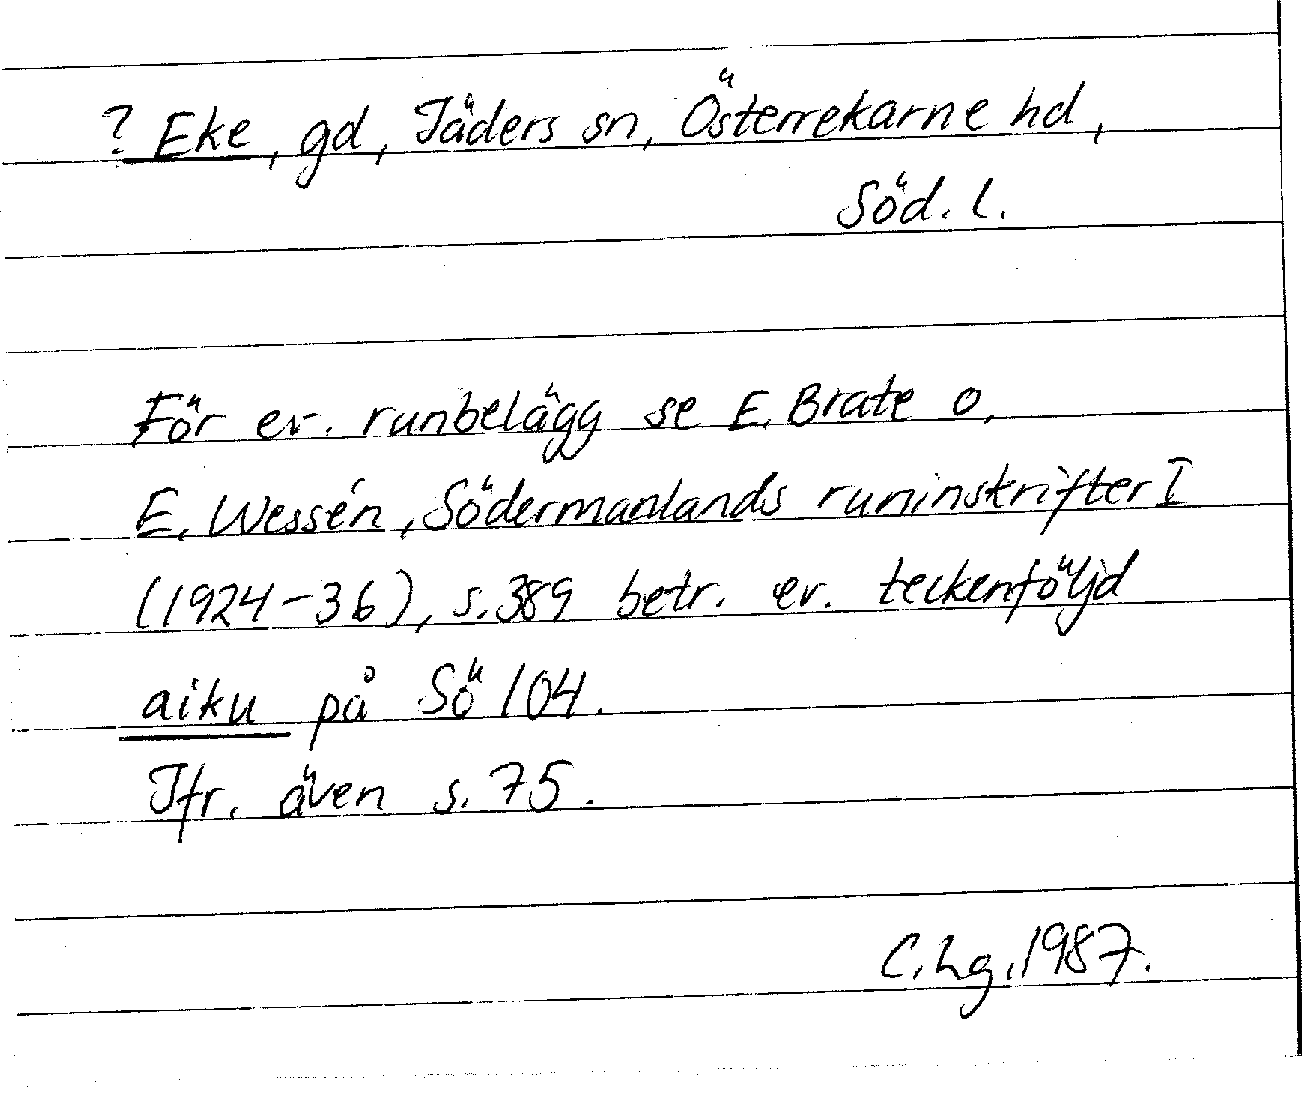 ? Eke, gd, Jäders sn, Österrekarne hd,
Söd. l.
För ev. runbelägg se E. Brate o.
E. Wessén, Södermanlands runinskrifter I
(1924-36), s. 389 betr. ev. teckenföljd
aiku på Sö 104.
Jfr. även s. 75.
C. Lg. 1987.